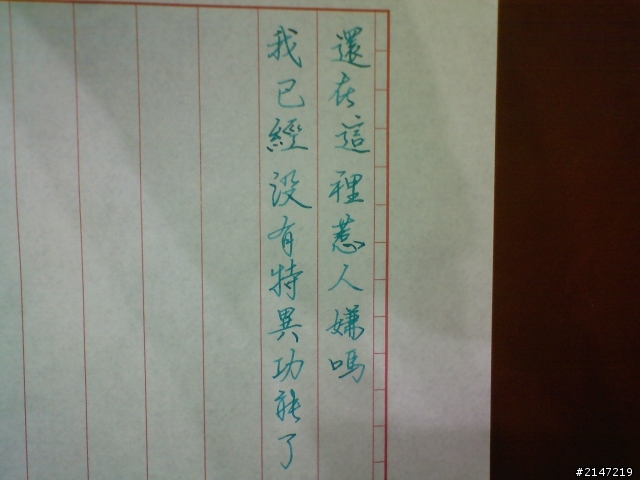 還在這裡惹人嫌嗎
我已經沒有特異功能了
#2147219